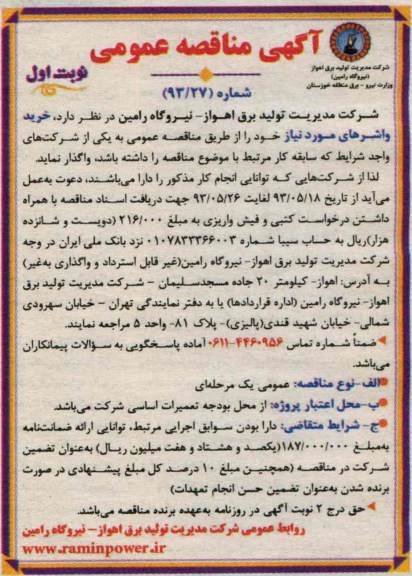 آگهی مناقصه عمومی
شرکت مدیریت تولید برق اهواز
(نیروگاه رامین)
وزارت نیرو - برق منطقه خوزستان
نوبت اول
شماره (۹۳/۲۷)
شرکت مدیریت تولید برق اهواز- نیروگاه رامین در نظر دارد، خرید
واشرهای مورد نیاز خود را از طریق مناقصه عمومی به یکی از شرکت‌های
واجد شرایط که سابقه کار مرتبط با موضوع مناقصه را داشته باشد، واگذار نماید.
لذا از شرکت‌هایی که توانایی انجام کار مذکور را دارا می‌باشند، دعوت به‌عمل
می‌آید از تاریخ ۹۳/۰۵/۱۸ لغایت ۹۳/۰۵/۲۶ جهت دریافت اسناد مناقصه با همراه
داشتن درخواست کتبی و فیش واریزی به مبلغ ۲۱۶/۰۰۰ (دویست و شانزده
هزار)ریال به حساب سیبا شماره ۰۱۰۷۸۳۳۳۶۶۰۰۳ نزد بانک ملی ایران در وجه
شرکت مدیریت تولید برق اهواز- نیروگاه رامین(غیر قابل استرداد و واگذاری به‌غیر)
به آدرس: اهواز- کیلومتر ۲۰ جاده مسجدسلیمان - شرکت مدیریت تولید برق
اهواز- نیروگاه رامین (اداره قراردادها) یا به دفتر نمایندگی تهران - خیابان سهروردی
شمالی- خیابان شهید قندی(پالیزی)- پلاک ۸۱- واحد ۵ مراجعه نمایند.
ضمناً شماره تماس ۴۴۶۰۹۵۶-۰۶۱۱ آماده پاسخگویی به سؤالات پیمانکاران
می‌باشد.
الف-نوع مناقصه: عمومی یک مرحله‌ای
ب-محل اعتبار پروژه: از محل بودجه تعمیرات اساسی شرکت می‌باشد.
ج- شرایط متقاضی: دارا بودن سوابق اجرایی مرتبط، توانایی ارائه ضمانت‌نامه
به‌مبلغ ۱۸۷/۰۰۰/۰۰۰(یکصد و هشتاد و هفت میلیون ریال) به‌عنوان تضمین
شرکت در مناقصه (همچنین مبلغ ۱۰ درصد کل مبلغ پیشنهادی در صورت
برنده شدن به‌عنوان تضمین حسن انجام تعهدات)
حق درج ۲ نوبت آگهی در روزنامه به‌عهده برنده مناقصه می‌باشد.
روابط عمومی شرکت مدیریت تولید برق اهواز- نیروگاه رامین
www.raminpower.ir